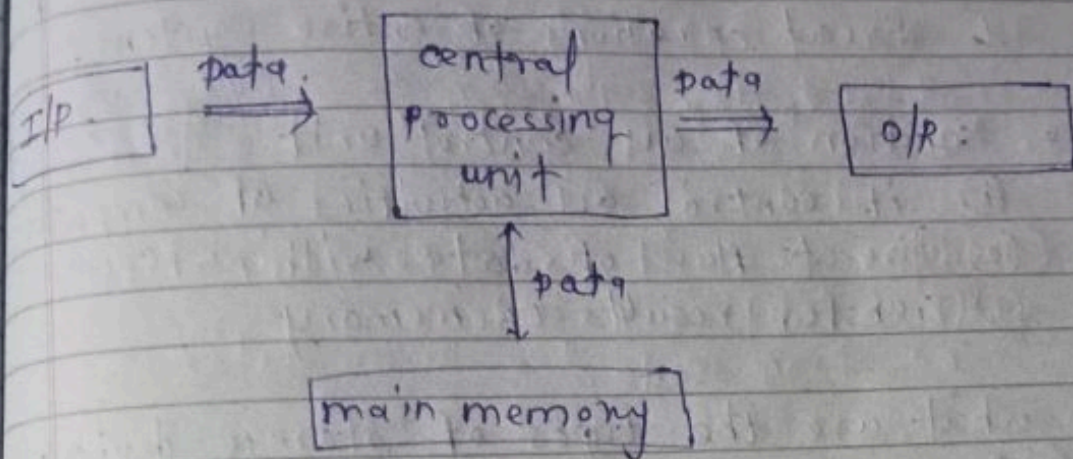 I/P.
Data.
central
processing
unit
Data
O/P:
Data
main memory